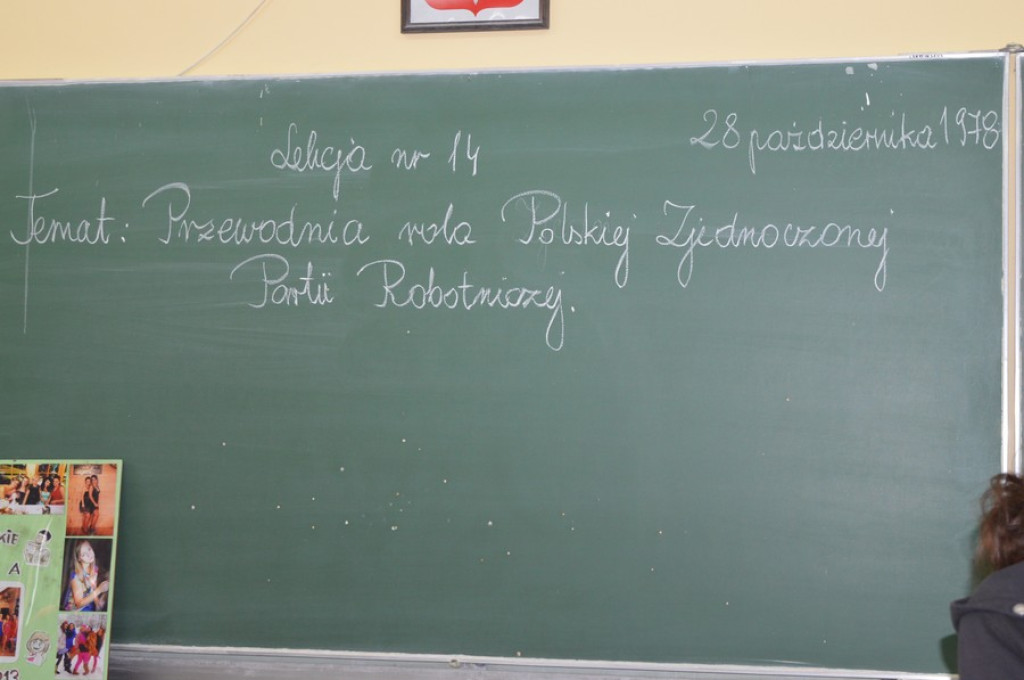 28 października 1978
Lekcja nr 14
Temat: Przewodnia rola Polskiej Zjednoczonej
Partii Robotniczej.
KIE
A
013